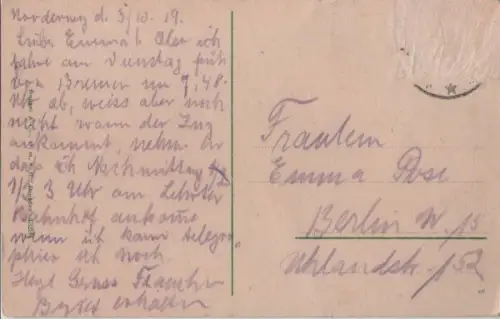 Norderney d. 3/10. 19.
Liebe Emma! Also ich
fahre am Dienstag früh
von Bremen um 7,48
Uhr ab, weiss aber noch
nicht wann der Zug
ankommt, nehme an
dass ich Nachmittag
1/2 3 Uhr am Lehrter
Bahnhof ankomme
wenn ich kann telegra-
phiere ich noch.
Herzl. Gruss
Brief erhalten
Fraulein
Emma Pose
Berlin W. 15
Uhlandstr. 152